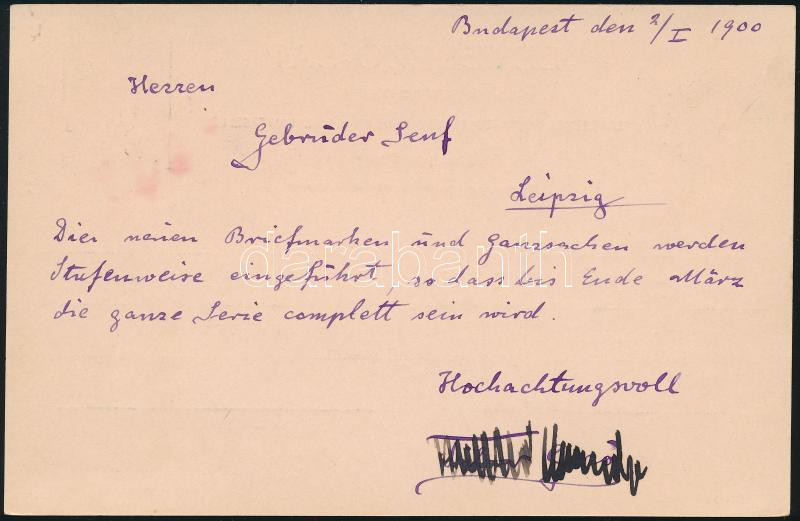 Budapest den 2/I 1900
Herren
Gebrüder Senf
Leipzig
Die neuen Briefmarken und Ganzsachen werden
darabanth
Stufenweise eingeführt so dass bis Ende März
die ganze Serie complett sein wird.
Hochachtungsvoll